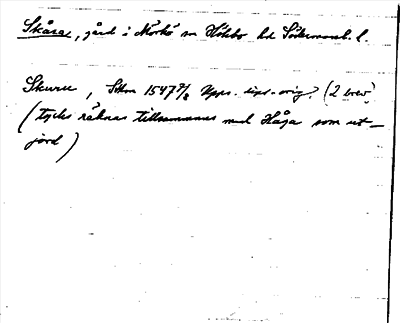 Skåra, gård i Mörkö sn Hölebo hd Södermanl. l.
Skuru, Sthm 1547 7/8 Upps. dipl. orig. (2 brev)
(tycks räknas tillsammans med Håga som ut-
jord)